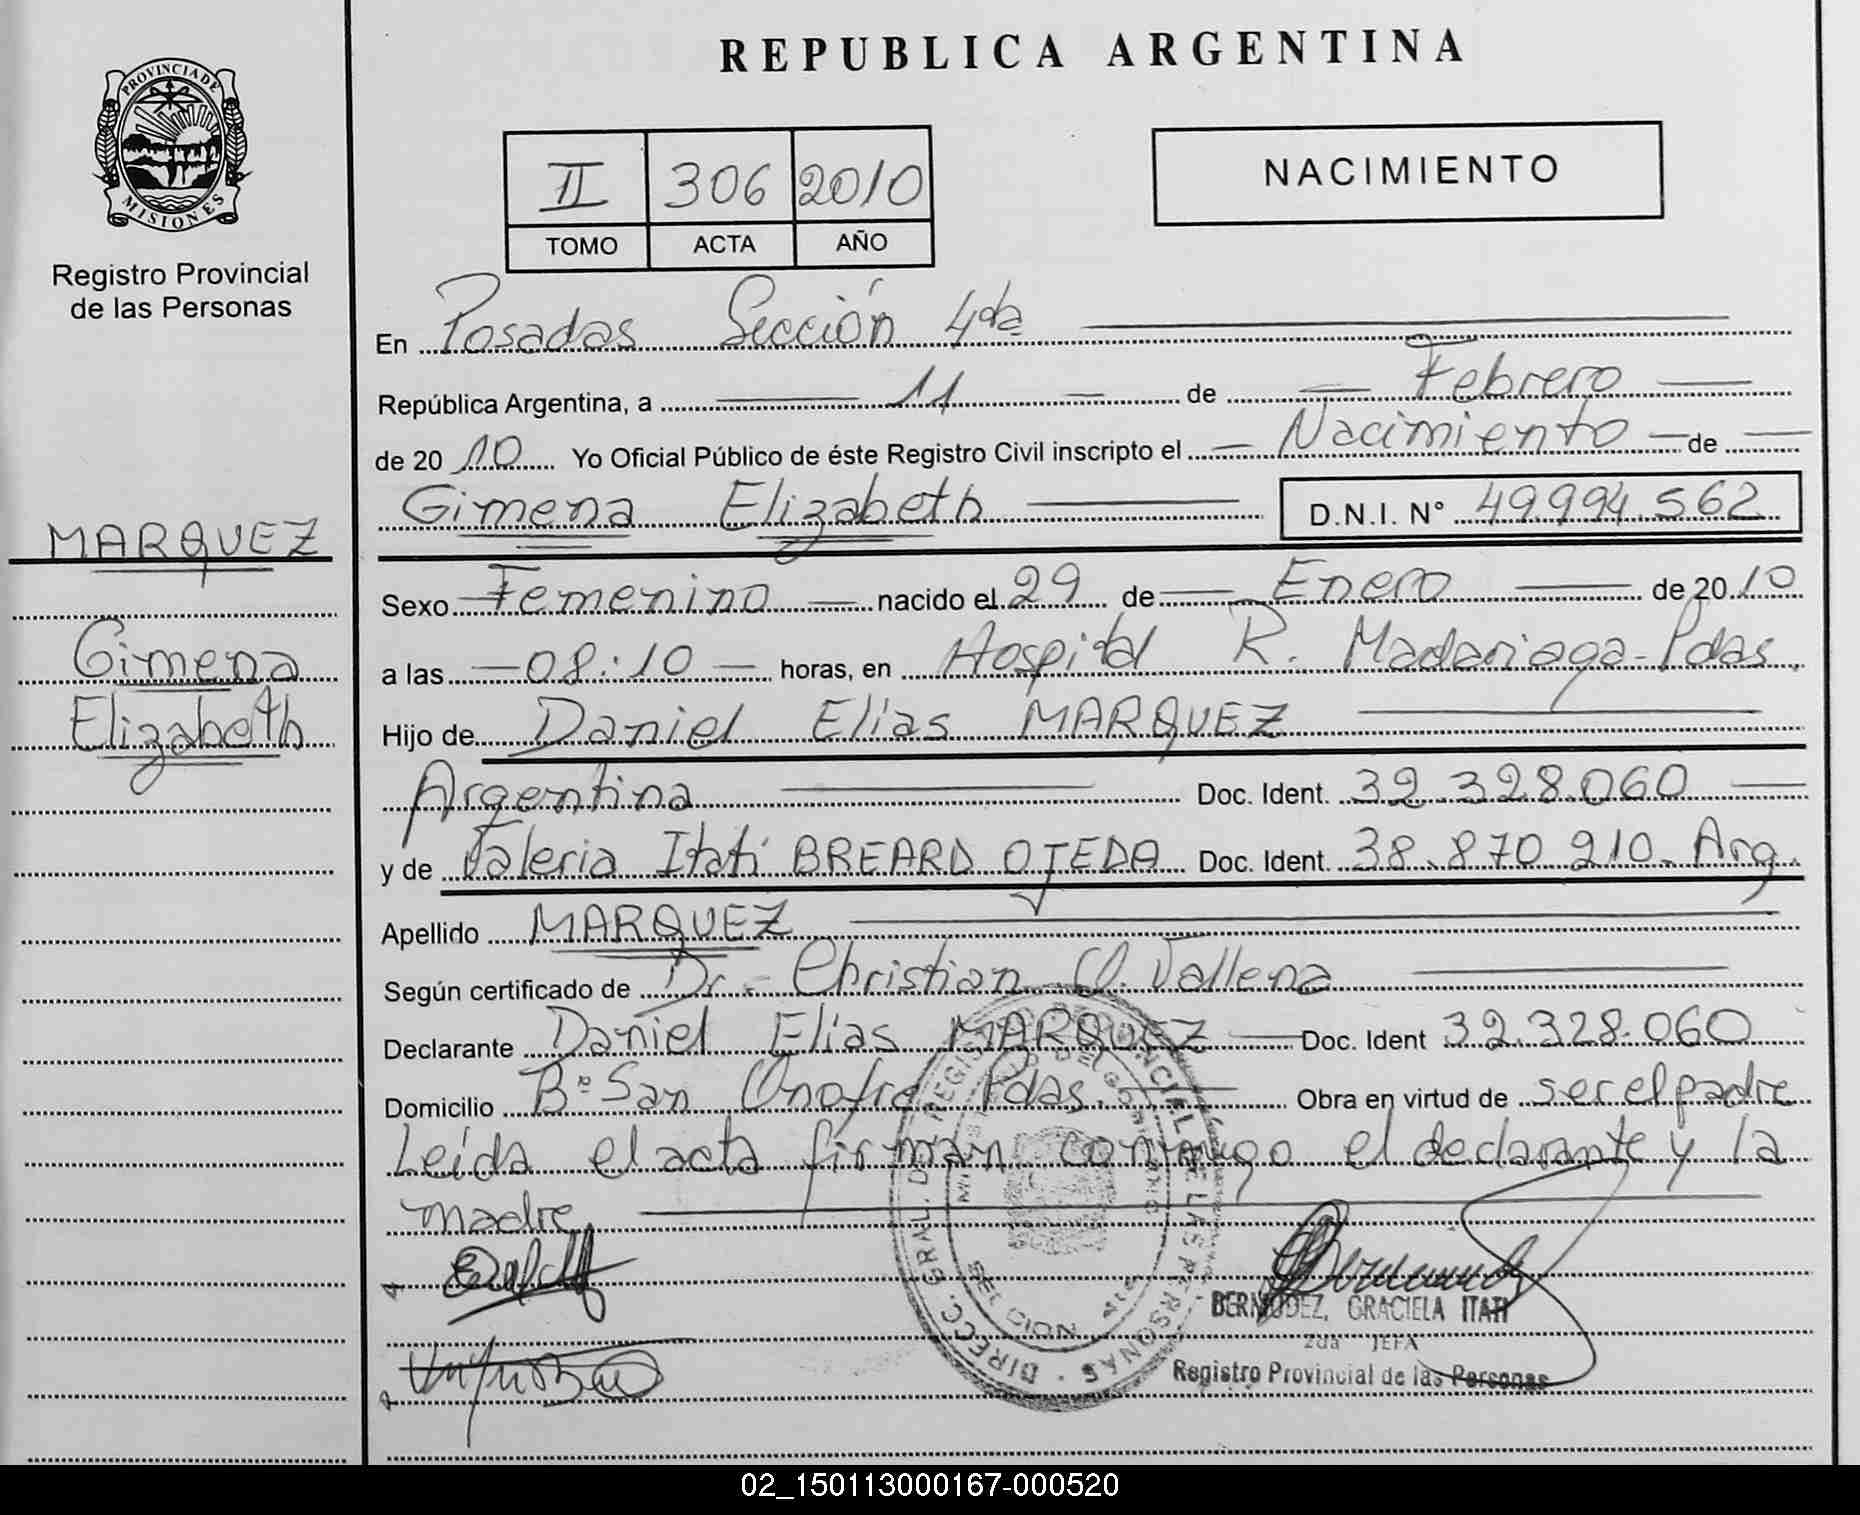 REPUBLICA ARGENTINA
PROVINCIA DE
MISIONES
Registro Provincial
de las Personas
II 306 2010
TOMO ACTA AÑO
NACIMIENTO
En Posadas Sección 4da
República Argentina, a 11 de Febrero
de 2010 Yo Oficial Público de éste Registro Civil inscripto el Nacimiento de
Gimena Elizabeth D.N.I. N° 49.994.562
MARQUEZ
Gimena
Elizabeth
Sexo Femenino nacido el 29 de Enero de 2010
a las 08:10 horas, en Hospital R. Madariaga-Pdas.
Hijo de Daniel Elías MARQUEZ
Argentina Doc. Ident. 32.328.060
y de Valeria Itatí BREARD OJEDA Doc. Ident. 38.870.210. Arg.
Apellido MARQUEZ
Según certificado de Dr. Christian O. Vallena
Declarante Daniel Elías MARQUEZ Doc. Ident 32.328.060
Domicilio B° San Onofre Pdas. Obra en virtud de ser el padre
Leída el acta firman conmigo el declarante y la
madre
BERMUDEZ, GRACIELA ITATI
2da JEFA
Registro Provincial de las Personas
02_150113000167-000520